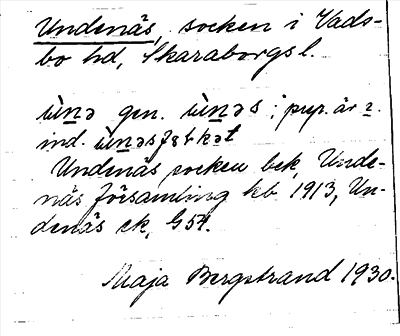 Undenäs, socken i Vads-
bo hd, Skaraborgs l.
ùnə gen. ùnəs; prep. är
ind.
Undenäs socken bek, Unde-
näs församling kb 1913, Un-
denäs ek, G54.
Maja Bergstrand 1930.